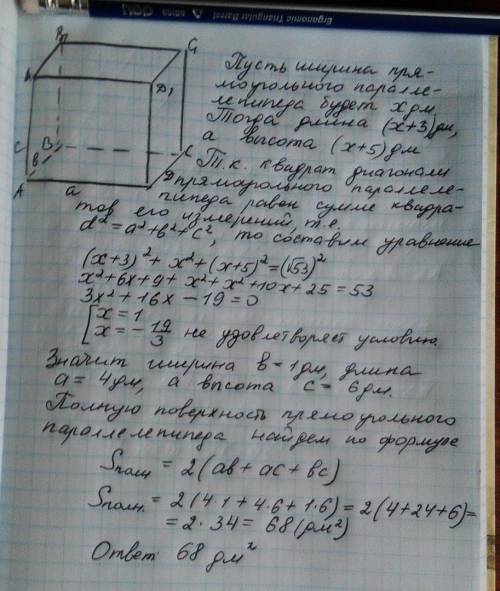 Ergonomic Triangular Barrel
B₁
C₁
A₁
D₁
Пусть ширина пря-
моугольного паралле-
лепипеда будет x дм
Тогда длина (x+3) дм,
а высота (x+5) дм
c
B
C
в
A
a
D
Т.к. квадрат диагонали
прямоугольного паралле-
пипеда равен сумме квадра-
тов его измерений, т.е.
d² = a² + b² + c², то составим уравнение
(x+3)² + x² + (x+5)² = (√53)²
x² + 6x + 9 + x² + x² + 10x + 25 = 53
3x² + 16x − 19 = 0
[x = 1
x = − 19/3 не удовлетворяет условию.
Значит ширина в = 1 дм, длина
a = 4 дм, а высота c = 6 дм.
Полную поверхность прямоугольного
параллелепипеда найдем по формуле
Sполн = 2(ab + ac + bc)
Sполн. = 2(4·1 + 4·6 + 1·6) = 2(4+24+6) =
= 2·34 = 68 (дм²)
Ответ: 68 дм²